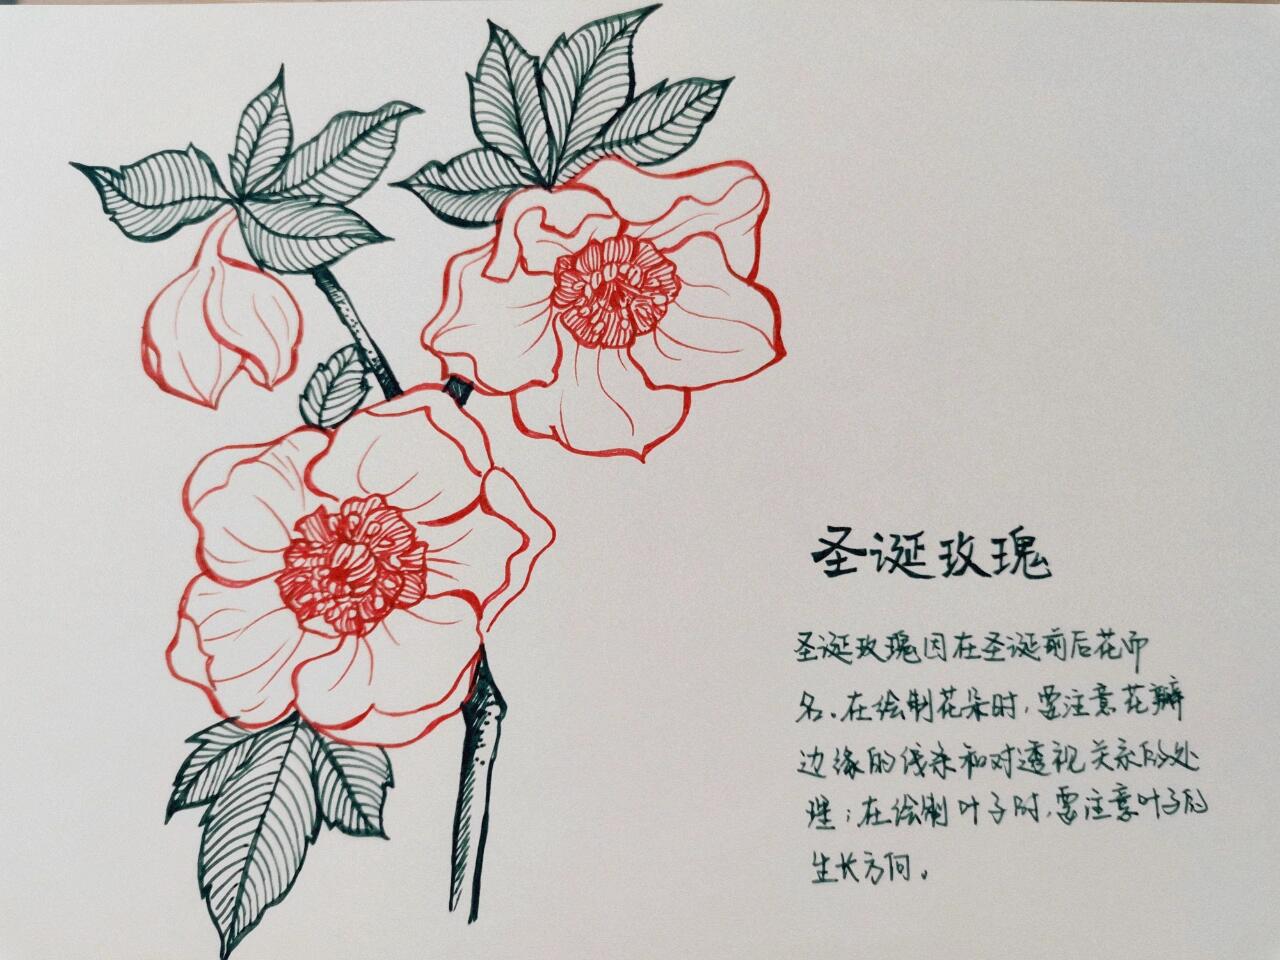 圣诞玫瑰
圣诞玫瑰因在圣诞前后花而
名.在绘制花朵时,要注意花瓣
边缘的线条和对透视关系的处
理;在绘制叶子时,要注意叶子的
生长方向。